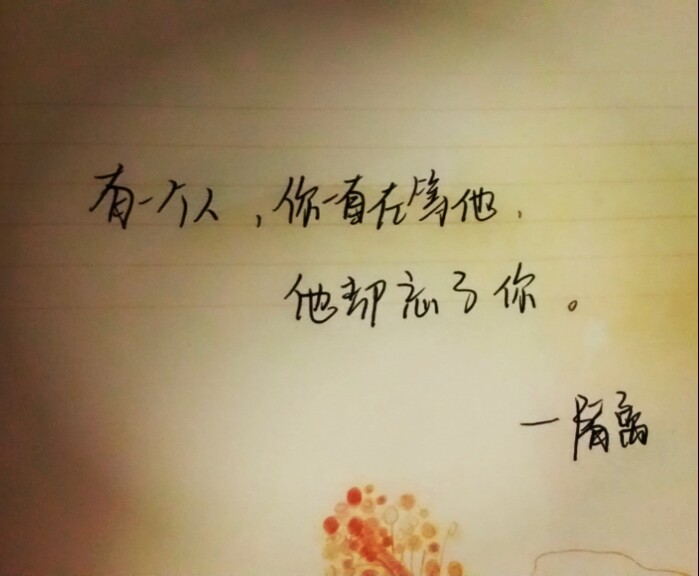 有一个人，你一直在等他，
他却忘了你。
一隔离